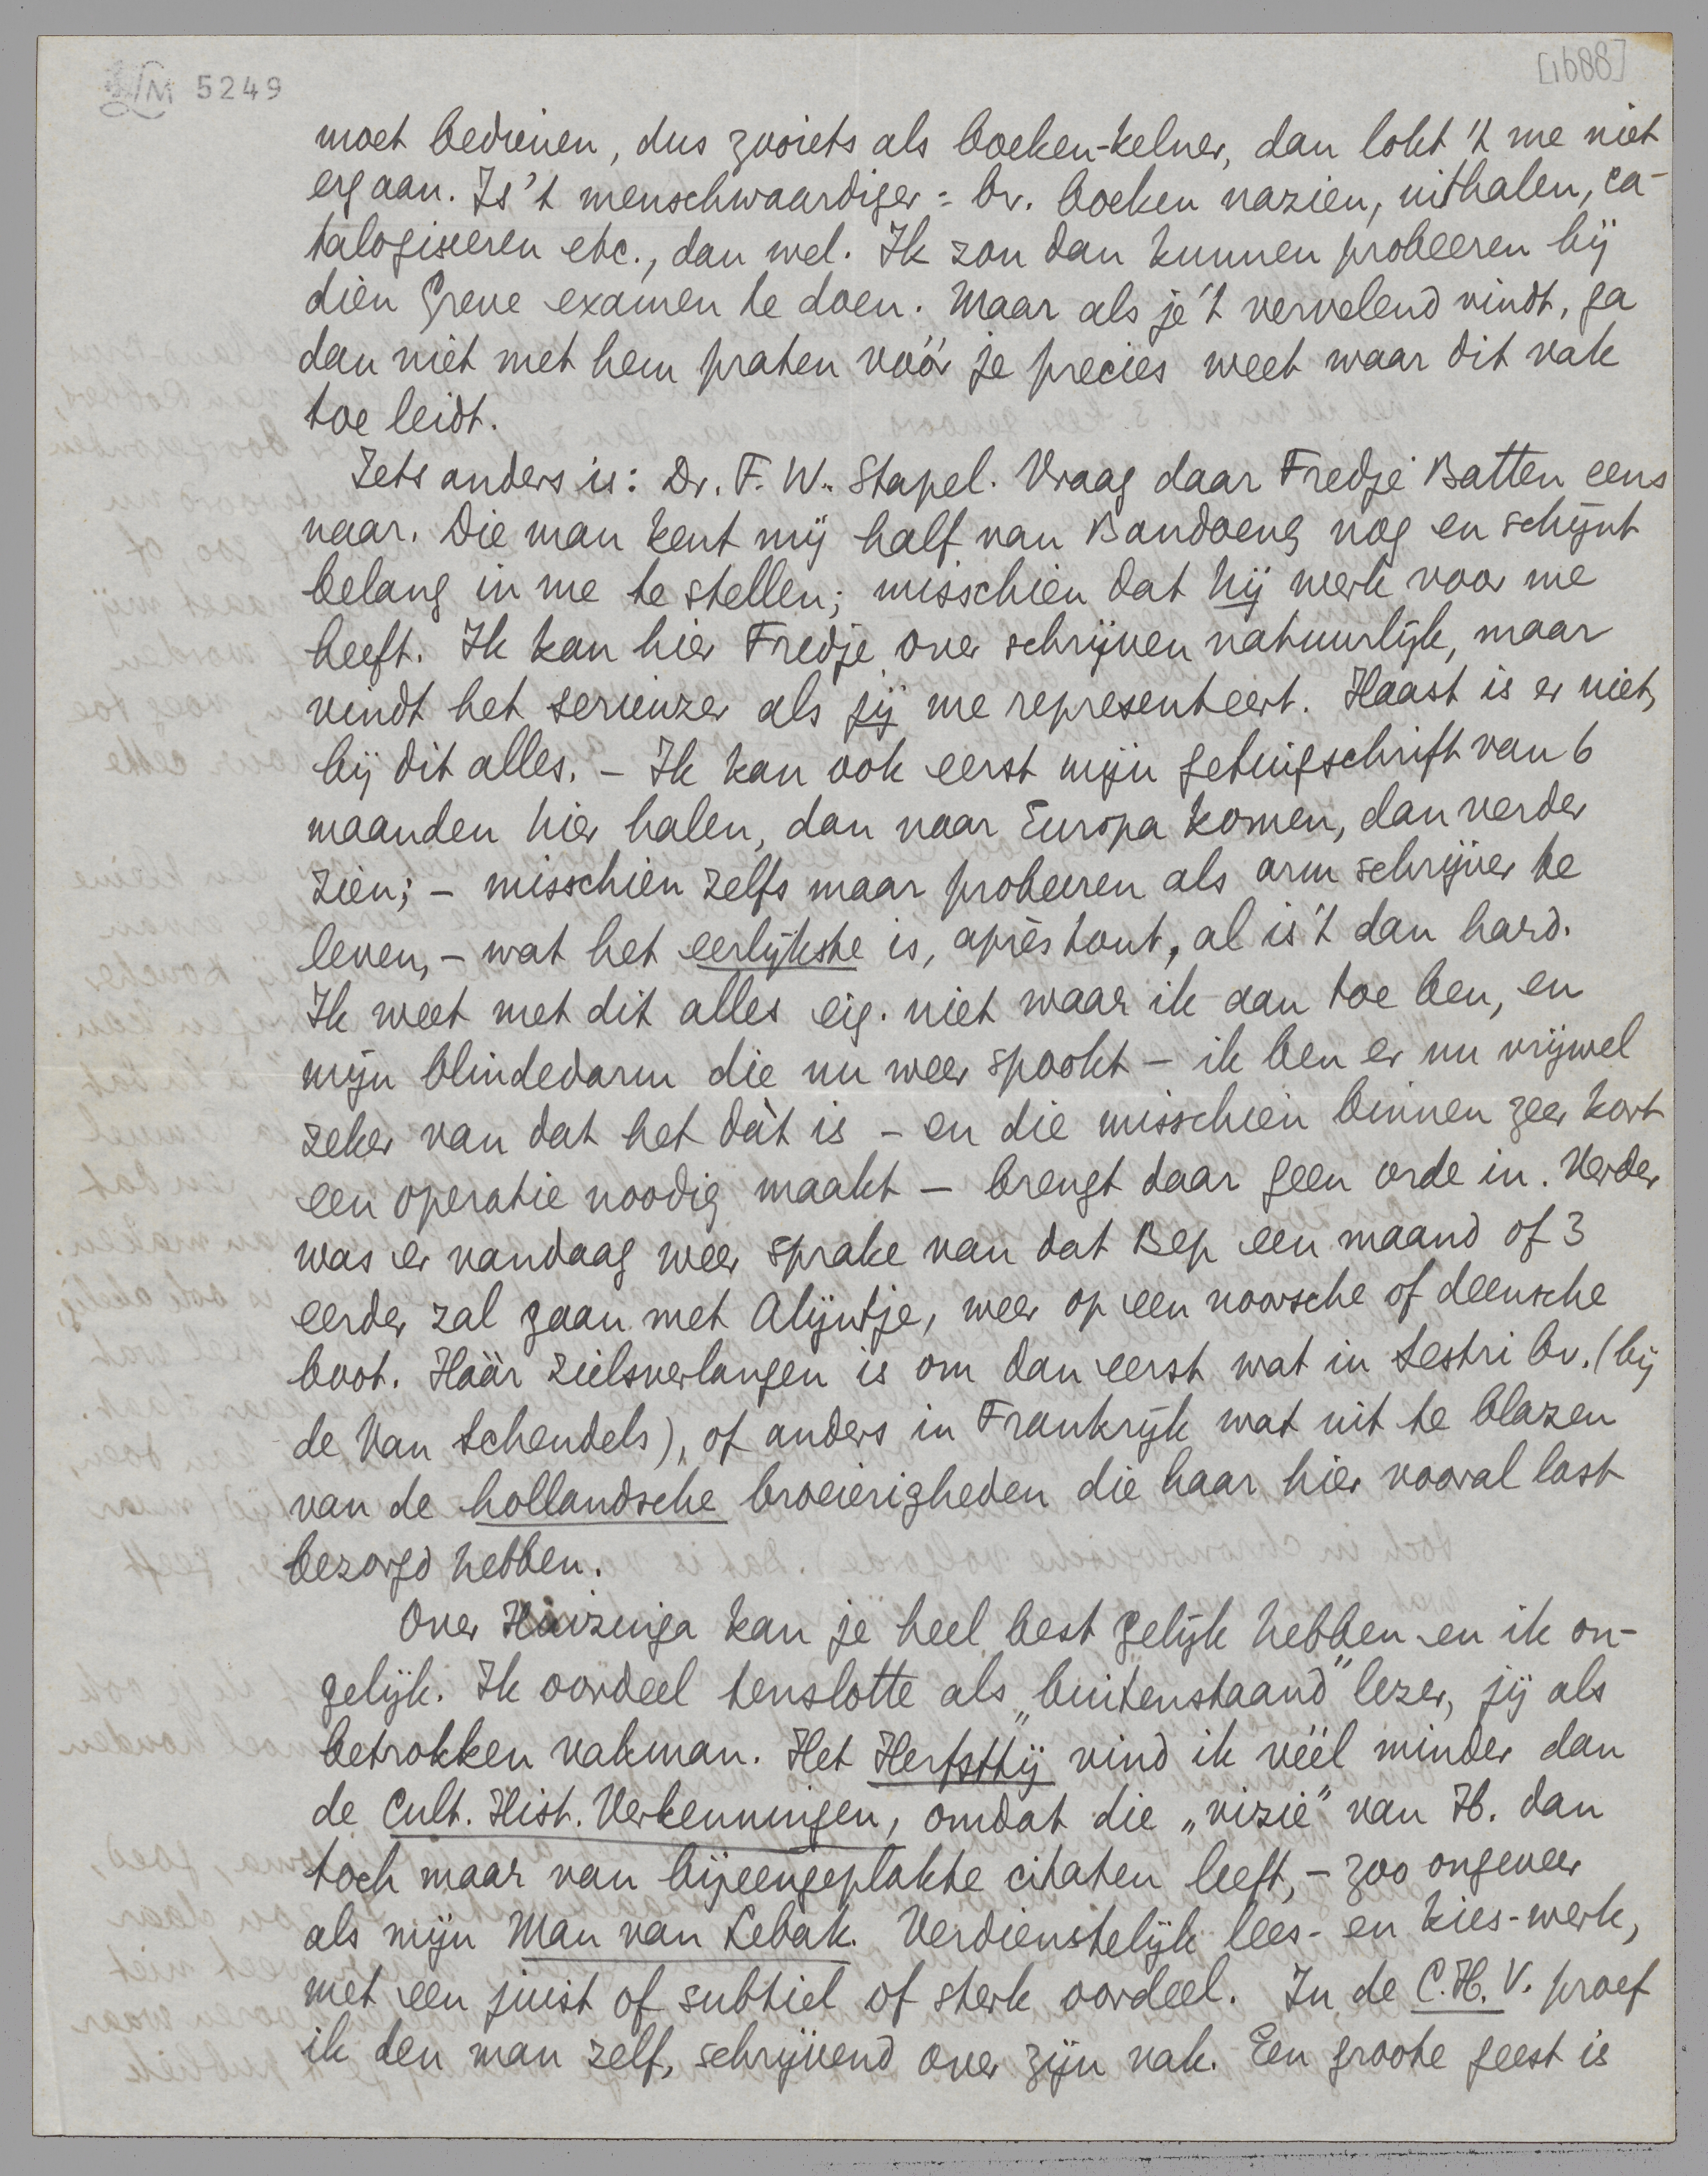 LM 5249
[1688]
moet bedienen, dus zooiets als boeken-kelner, dan lokt 't me niet
erg aan. Is 't menschwaardiger = bv. boeken nazien, uithalen, ca-
talogiseeren etc., dan wel. Ik zou dan kunnen probeeren bij
dien Greve examen te doen. Maar als je 't vervelend vindt, ga
dan niet met hem praten vóór je precies weet waar dit vak
toe leidt.
Iets anders is: Dr. F. W. Stapel. Vraag daar Fredje Batten eens
naar. Die man kent mij half van Bandoeng nog en schijnt
belang in me te stellen; misschien dat hij werk voor me
heeft. Ik kan hier Fredje over schrijven natuurlijk, maar
vindt het serieuzer als jij me representeert. Haast is er niet,
bij dit alles. – Ik kan ook eerst mijn getuigschrift van 6
maanden hier halen, dan naar Europa komen, dan verder
zien; – misschien zelfs maar probeeren als arm schrijver te
leven, – wat het eerlijkste is, après tout, al is 't dan hard.
Ik weet met dit alles eig. niet waar ik aan toe ben, en
mijn blindedarm die nu weer spookt – ik ben er nu vrijwel
zeker van dat het dàt is – en die misschien binnen zeer kort
een operatie noodig maakt – brengt daar geen orde in. Verder
was er vandaag weer sprake van dat Bep een maand of 3
eerder zal gaan met Alijntje, weer op een noorsche of deensche
boot. Háár zielsverlangen is om dan eerst wat in Sestri bv. (bij
de Van Schendels), of anders in Frankrijk wat uit te blazen
van de hollandsche broeierigheden die haar hier vooral last
bezorgd hebben.
Over Huizinga kan je heel best gelijk hebben en ik on-
gelijk. Ik oordeel tenslotte als „buitenstaand" lezer, jij als
betrokken vakman. Het Herfsttij vind ik véél minder dan
de Cult. Hist. Verkenningen, omdat die „vizie" van H. dan
toch maar van bijeengeplakte citaten leeft, – zoo ongeveer
als mijn Man van Lebak. Verdienstelijk lees- en kies-werk,
met een juist of subtiel of sterk oordeel. In de C.H.V. proef
ik den man zelf, schrijvend over zijn vak. Een groote geest is